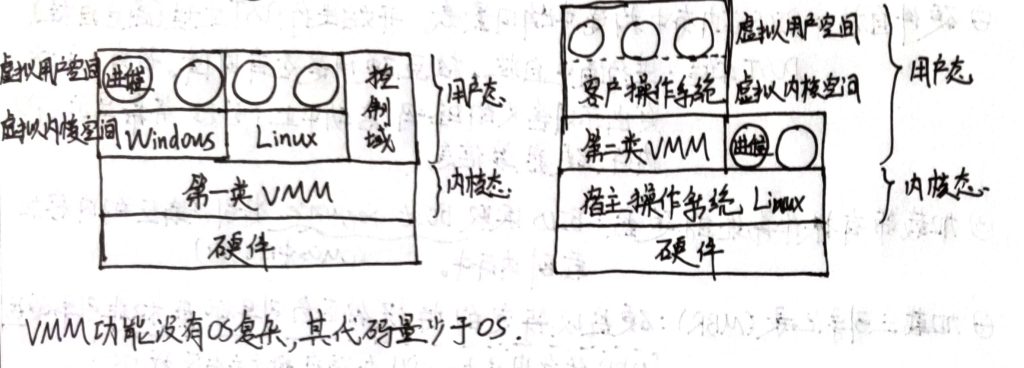 虚拟用户空间
进程
控制域
用户态
虚拟内核空间
Windows
Linux
第一类VMM
内核态
硬件
虚拟用户空间
客户操作系统
虚拟内核空间
用户态
第二类VMM
进程
宿主操作系统 Linux
内核态
硬件
VMM功能没有OS复杂,其代码量少于OS.